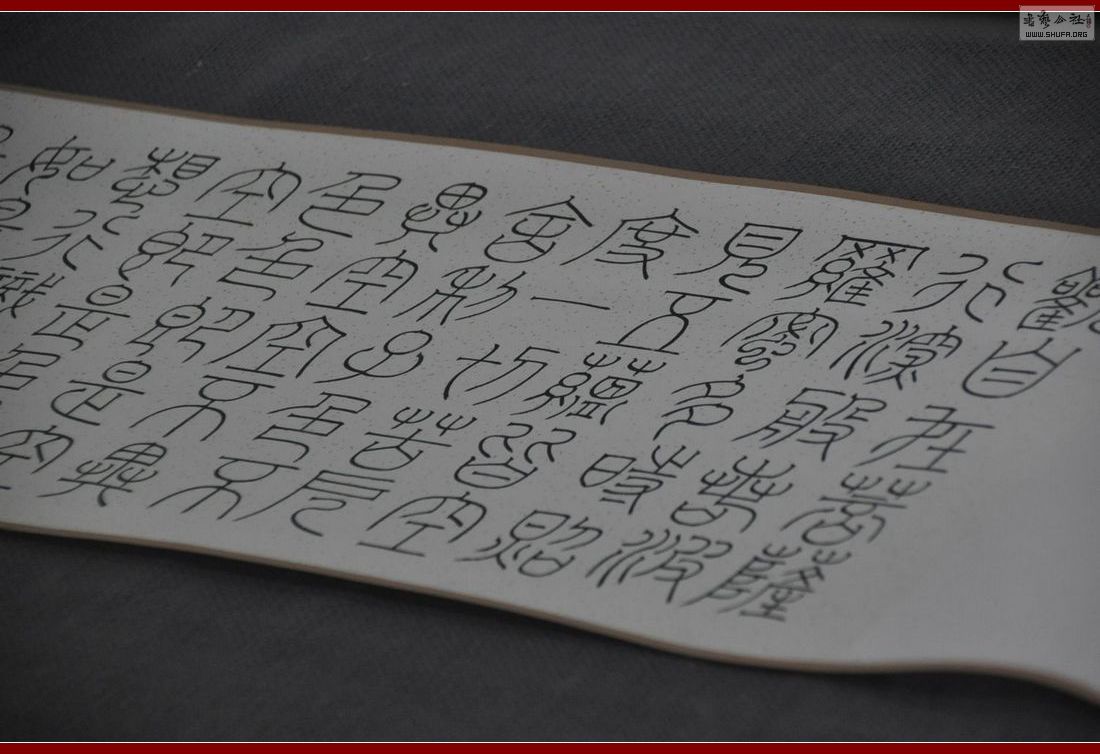 觀自在菩薩
行深般若波
羅蜜多時照
見五蘊皆空
度一切苦厄
舍利子色不
異空空不異
色色即是空
空即是色
想行識
如是
書法公社
WWW.SHUFA.ORG